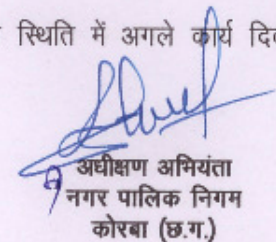 स्थिति में अगले कार्य
अधीक्षण अभियंता
नगर पालिक निगम
कोरबा (छ.ग.)